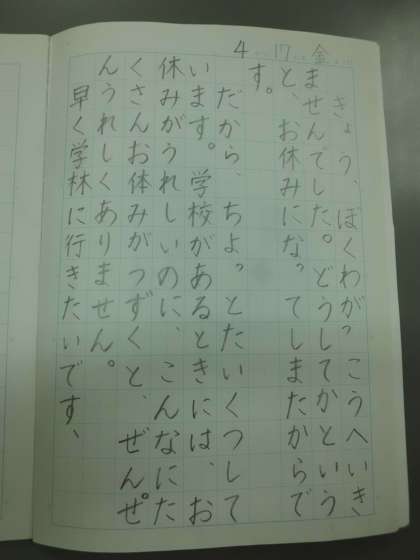 4 17 金
きょう、ぼくわがっこうへいき
ませんでした。どうしてかという
と、お休みになってしまたからで
す。
だから、ちょっとたいくつして
います。学校があるときには、お
休みがうれしいのに、こんなにた
くさんお体みがつずくと、ぜんぜ
んうれしくありません。
早く学林に行きたいです、